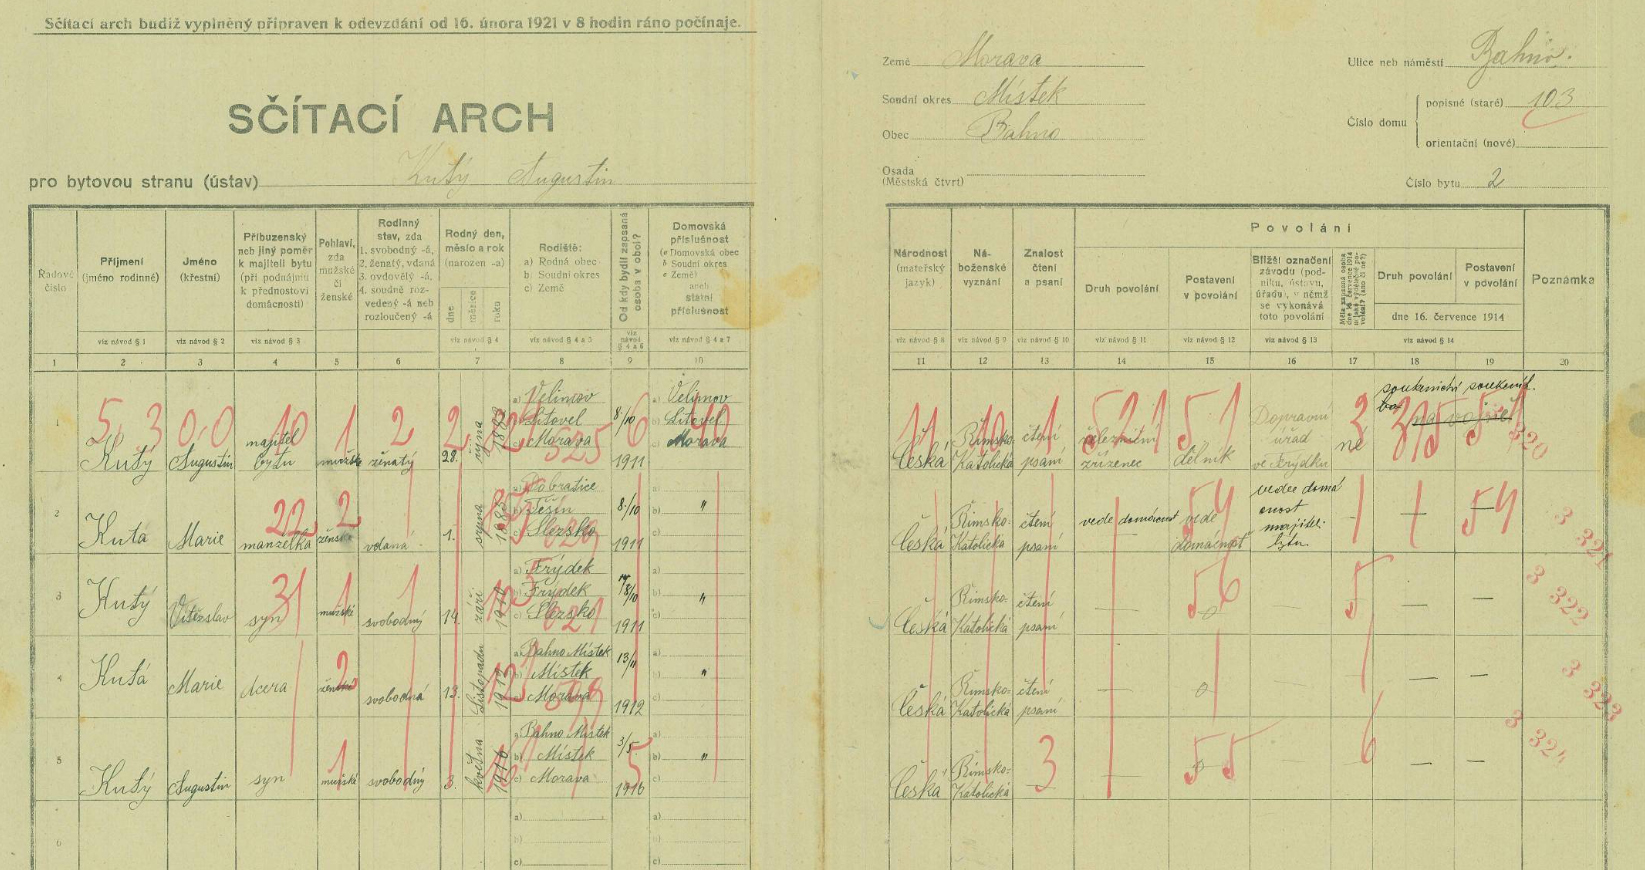 Sčítací arch budiž vyplněný připraven k odevzdání od 16. února 1921 v 8 hodin ráno počínaje.
SČÍTACÍ ARCH
pro bytovou stranu (ústav) Kutý Augustin
Země Morava
Soudní okres Místek
Obec Bahno
Osada
(Městská čtvrť)
Ulice neb náměstí Bahno.
Číslo domu
popisné (staré) 103
orientační (nové)
Číslo bytu 2
Řadové číslo
Příjmení
(jméno rodinné)
viz návod § 1
Jméno
(křestní)
viz návod § 2
Příbuzenský
neb jiný poměr
k majiteli bytu
(při podnájmu
k přednostovi
domácnosti)
viz návod § 3
Pohlaví,
zda
mužské
či
ženské
Rodinný
stav, zda
1. svobodný -á,
2. ženatý, vdaná
3. ovdovělý -á,
4. soudně roz-
vedený -á neb
rozloučený -á
Rodný den,
měsíc a rok
(narozen -a)
dne
měsíce
roku
viz návod § 4
Rodiště:
a) Rodná obec
b) Soudní okres
c) Země
viz návod § 4 a 5
Od kdy bydlí zapsaná
osoba v obci?
viz
návod
§ 4 a 6
Domovská
příslušnost
(a Domovská obec
b Soudní okres
c Země)
aneb
státní
příslušnost
viz návod § 4 a 7
Národnost
(mateřský
jazyk)
viz návod § 8
Ná-
boženské
vyznání
viz návod § 9
Znalost
čtení
a psaní
viz návod § 10
Povolání
Druh povolání
viz návod § 11
Postavení
v povolání
viz návod § 12
Bližší označení
závodu (pod-
niku, ústavu,
úřadu), v němž
se vykonává
toto povolání
viz návod § 13
Druh povolání
Postavení
v povolání
dne 16. července 1914
viz návod § 14
Poznámka
1 2 3 4 5 6 7 8 9 10 11 12 13 14 15 16 17 18 19 20
1
Kutý Augustin
majitel
bytu
mužské ženatý 28. října
a)
b) Litovel
c) Morava
8/10
1911
b) Litovel
c Morava
Česká
Římsko-
Katolická
čtení
psaní
železniční
zřízenec
dělník
Dopravní
úřad
ve Frýdku
ne
soukenictví soukeník
320
2
Kutá Marie manželka ženské vdaná 1. srpna
a) Dobratice
b) Těšín
c) Slezsko
8/10
1911
"
Česká
Římsko-
Katolická
čtení
psaní
vede domácnost
vede
domácnost
vede domá
cnost
majitel.
bytu
3 321
3
Kutý Vítězslav syn mužské svobodný 14. září 1910
a) Frýdek
b) Frýdek
c) Slezsko
8/10
1911
"
Česká
Římsko-
Katolická
čtení
psaní
— 0 — —
3 322
4
Kutá Marie dcera ženské svobodná 13. listopadu 1912
a) Bahno Místek
b) Místek
c) Morava
13/11
1912
"
Česká
Římsko-
Katolická
čtení
psaní
— 0 — —
3 323
5
Kutý Augustin syn mužské svobodný 3. května 1916
a) Bahno Místek
b) Místek
c) Morava
3/5
1916
"
Česká
Římsko-
Katolická
— — —
3 324
6
a)
b)
c)